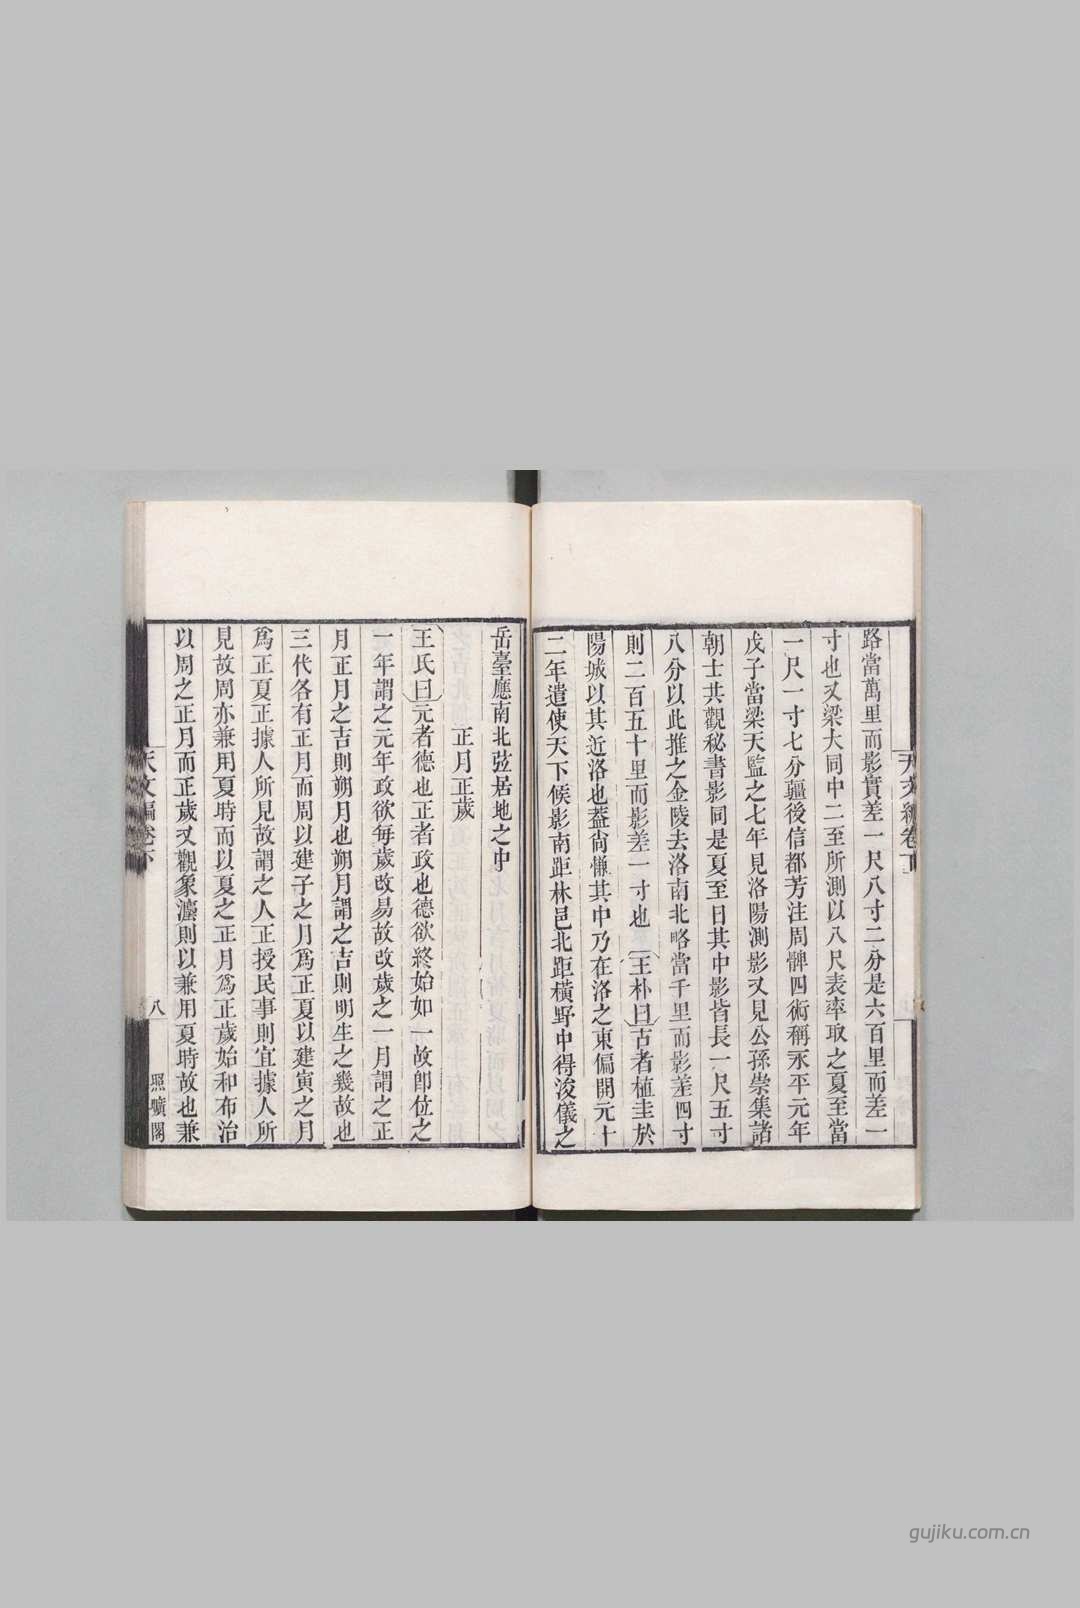 路當萬里而影實差一尺八寸二分是六百里而差一
寸也又梁大同中二至所測以八尺表率取之夏至當
一尺一寸七分疆後信都芳注周髀四術稱永平元年
戊子當梁天監之七年見洛陽測影又見公孫崇集諸
朝士共觀秘書影同是夏至日其中影皆長一尺五寸
八分以此推之金陵去洛南北略當千里而影差四寸
則二百五十里而影差一寸也王朴曰古者植圭於
陽城以其近洛也蓋尚慊其中乃在洛之東偏開元十
二年遣使天下候影南距林邑北距橫野中得浚儀之
岳臺應南北弦居地之中
正月正歲
王氏曰元者德也正者政也德欲終始如一故卽位之
一年謂之元年政欲每歲改易故改歲之一月謂之正
月正月之吉則朔月也朔月謂之吉則明生之幾故也
三代各有正月而周以建子之月爲正夏以建寅之月
爲正夏正據人所見故謂之人正授民事則宜據人所
見故周亦兼用夏時而以夏之正月爲正歲始和布治
以周之正月而正歲又觀象灋則以兼用夏時故也兼
天文編卷下
八
照曠閣
gujiku.com.cn